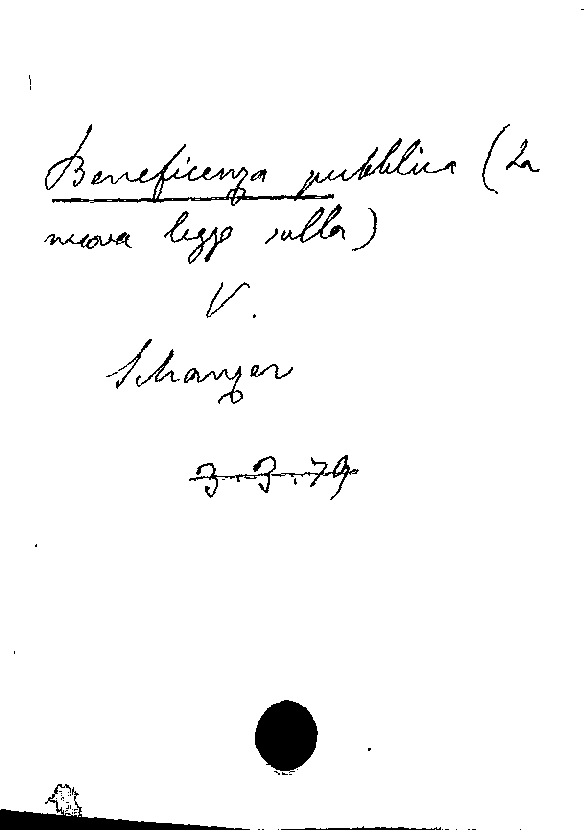 Beneficenza pubblica (La
nuova legge sulla)
V.
Schanzer
3.3.79